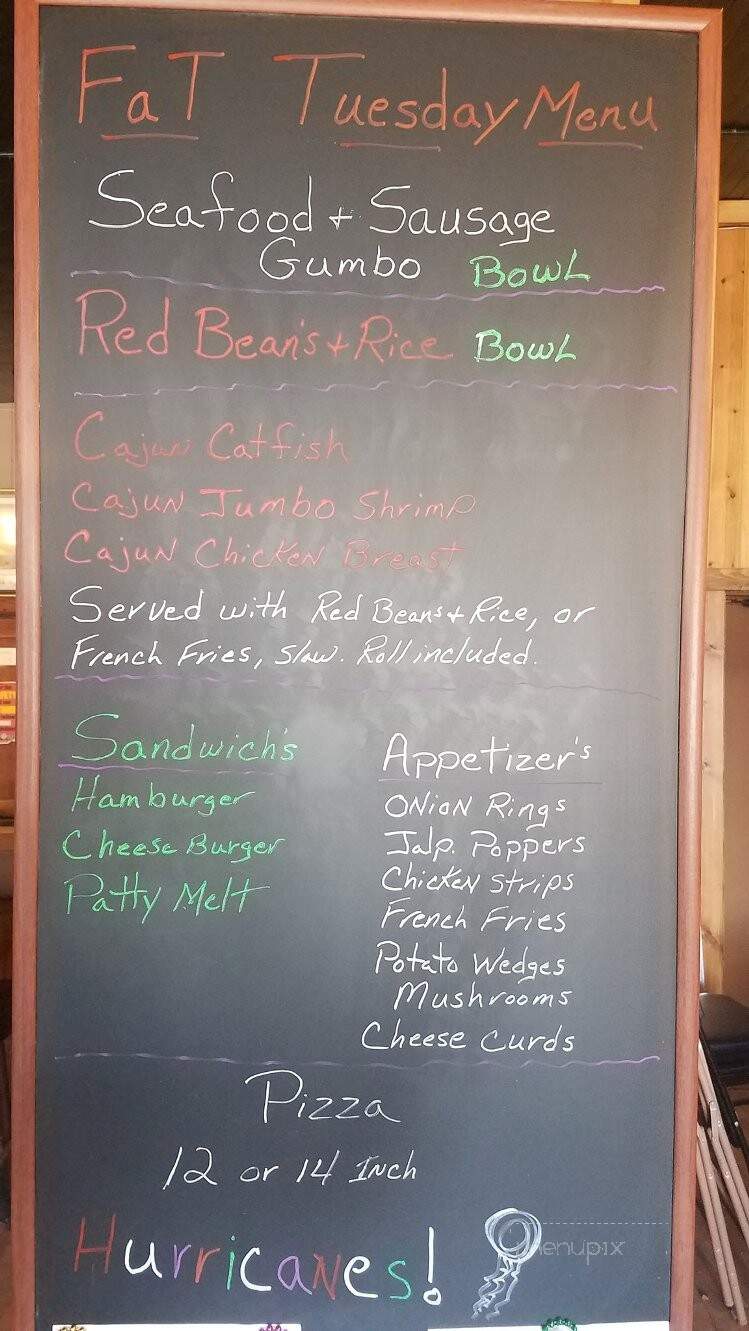 FaT Tuesday Menu
Seafood + Sausage
Gumbo Bowl
Red Bean's + Rice Bowl
Cajun Catfish
Cajun Jumbo Shrimp
Cajun Chicken Breast
Served with Red Beans + Rice, or
French Fries, Slaw. Roll included.
Sandwich's
Hamburger
Cheese Burger
Patty Melt
Appetizer's
Onion Rings
Jalp. Poppers
Chicken Strips
French Fries
Potato Wedges
Mushrooms
Cheese Curds
Pizza
12 or 14 Inch
Hurricanes!
menupix